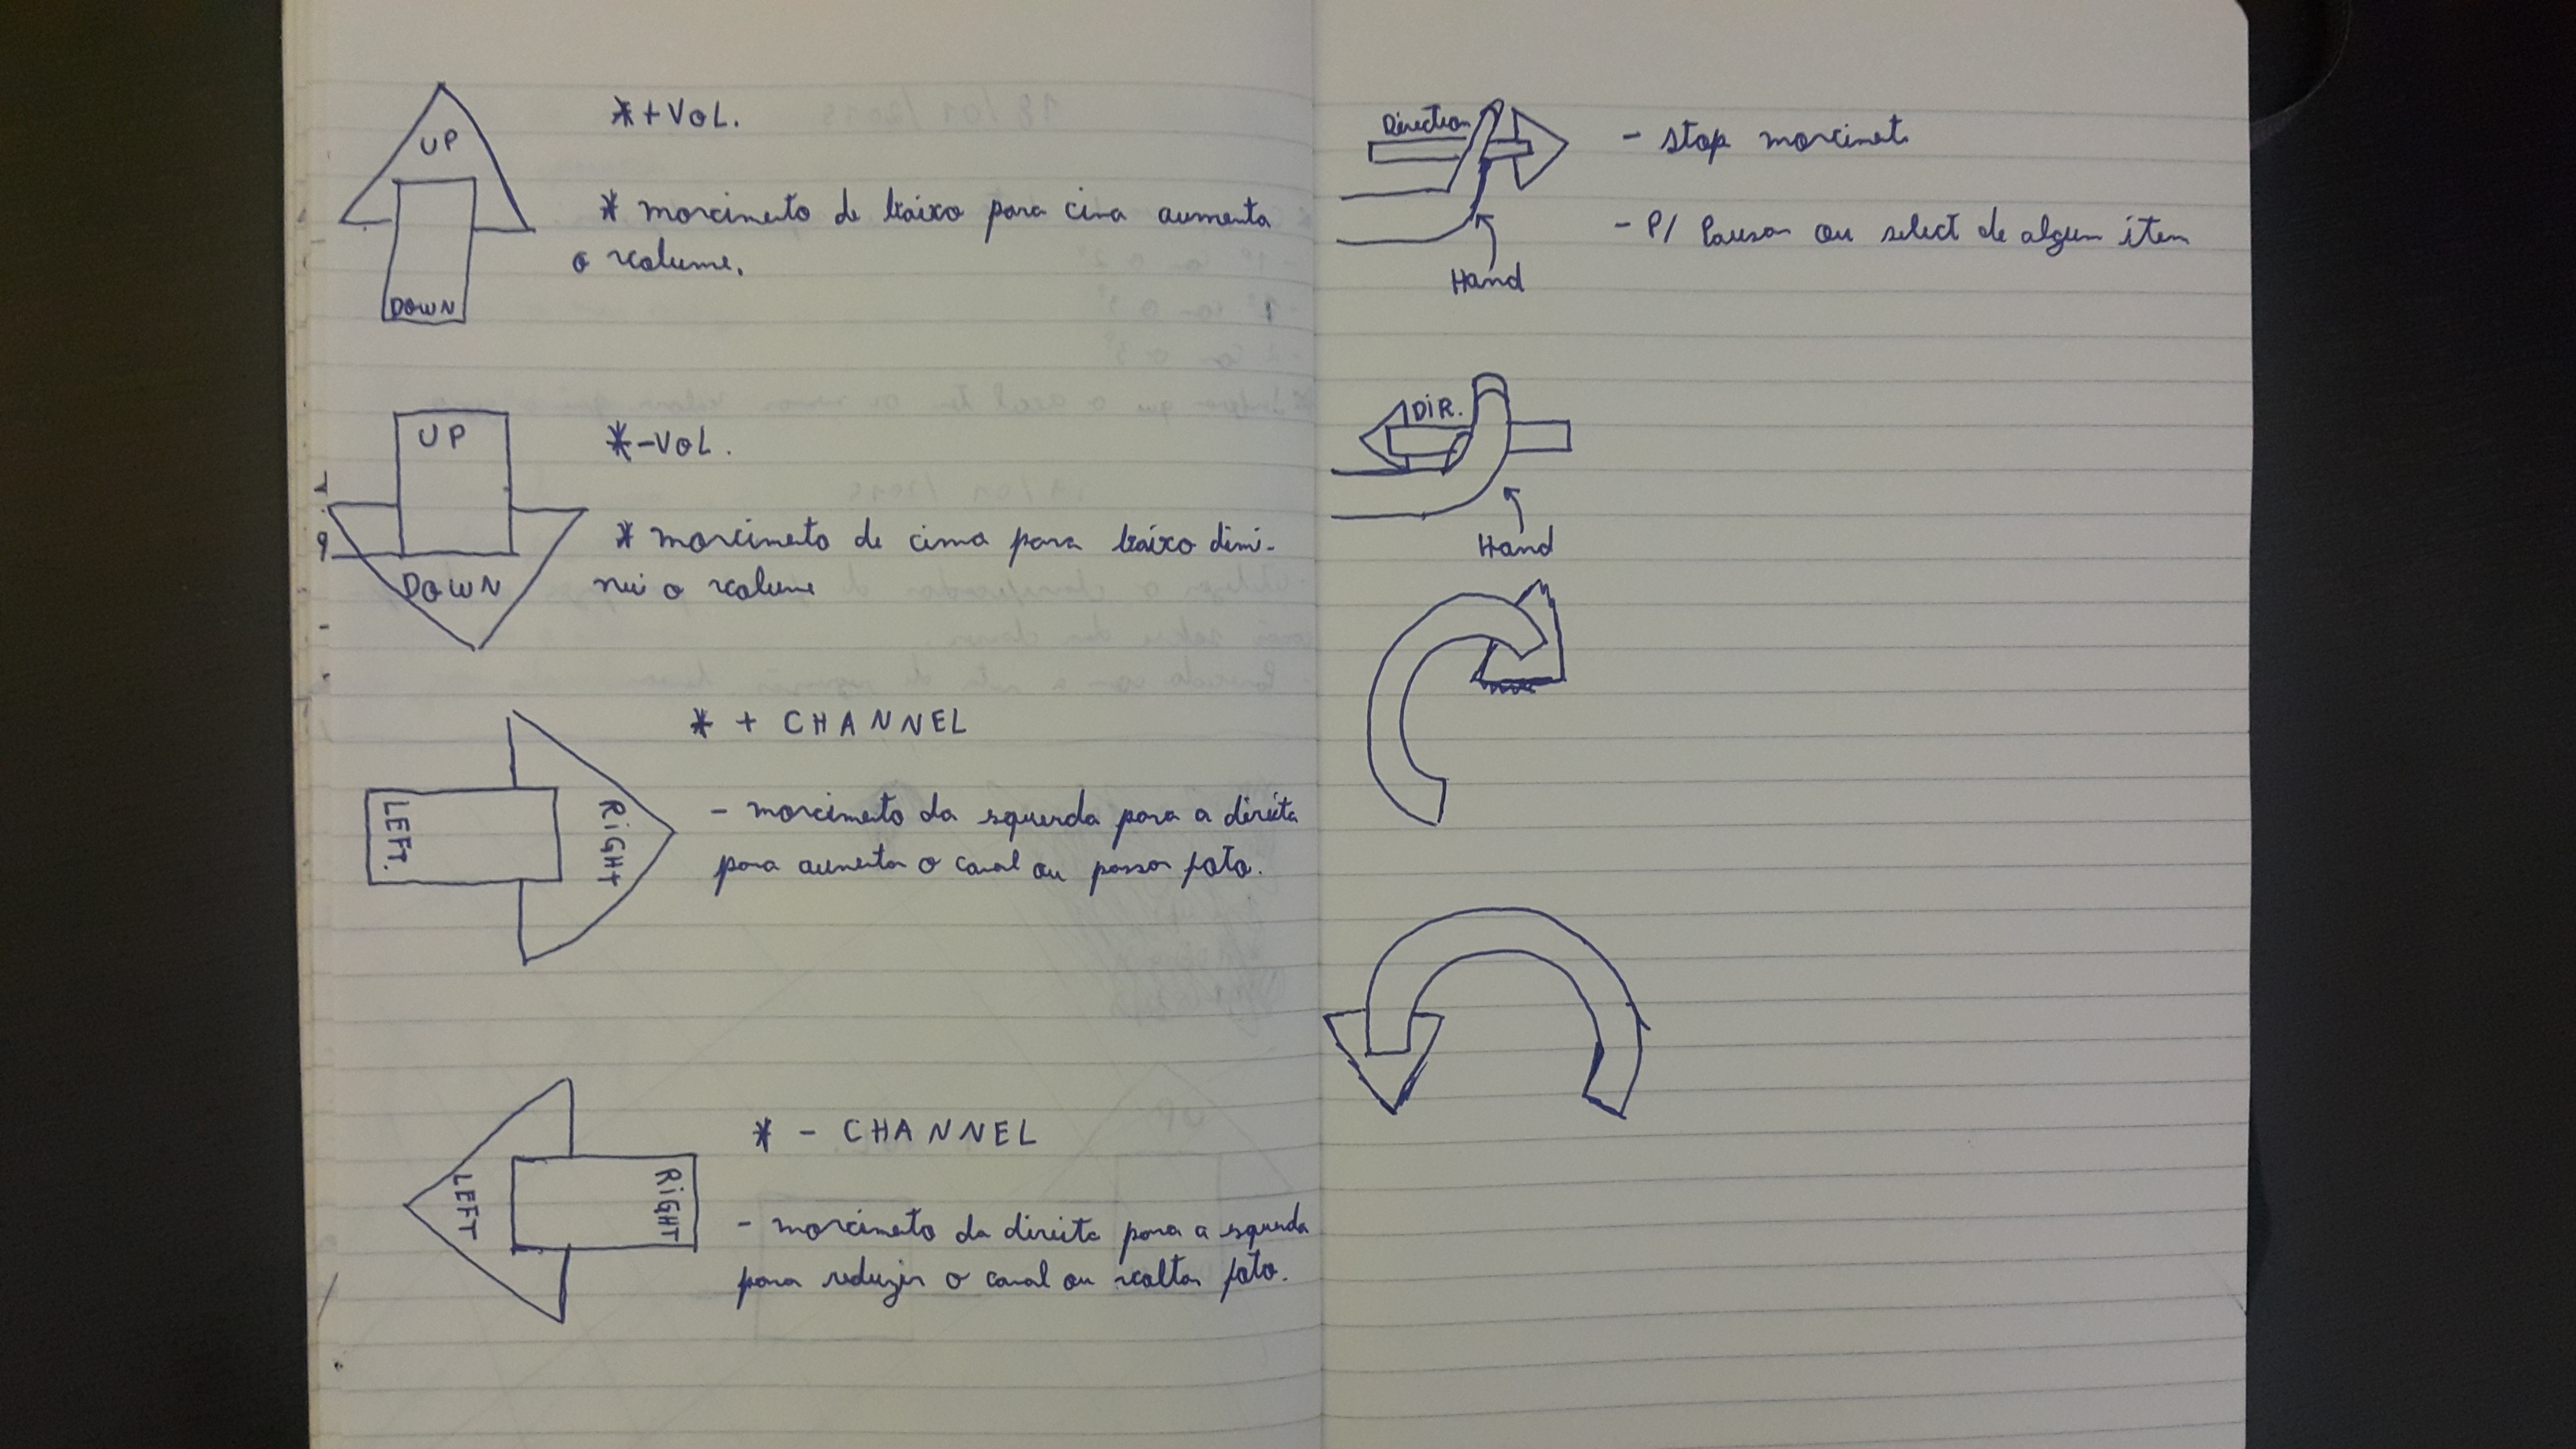 UP
DOWN
*+VOL.
* movimento de baixo para cima aumenta
o volume.
UP
DOWN
*-VOL.
* movimento de cima para baixo dimi-
nui o volume
LEFT.
RIGHT
* + CHANNEL
- movimento da squerda para a direita
para aumentar o canal ou passar foto.
LEFT
RIGHT
* - CHANNEL
- movimento da direita para a squerda
para reduzir o canal ou voltar foto.
Direction
Hand
- stop moviment
- P/ Pausar ou select de algum item
DIR.
Hand